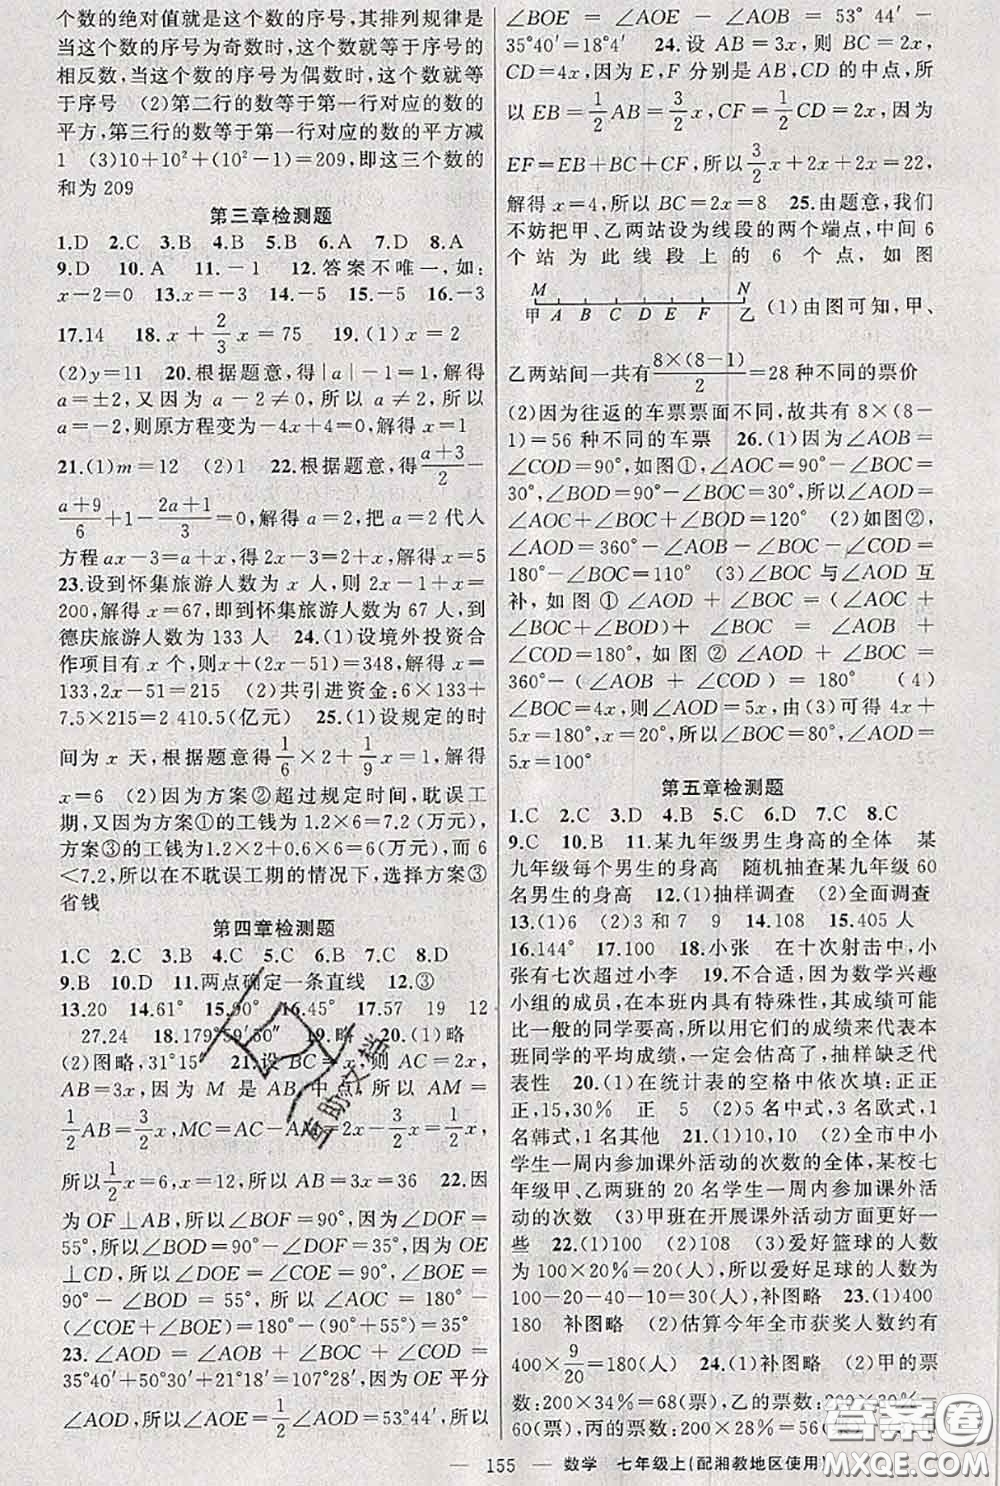 个数的绝对值就是这个数的序号,其排列规律是
当这个数的序号为奇数时,这个数就等于序号的
相反数,当这个数的序号为偶数时,这个数就等
于序号 (2)第二行的数等于第一行对应的数的
平方,第三行的数等于第一行对应的数的平方减
1 (3)10+10²+(10²-1)=209,即这三个数的
和为 209
第三章检测题
1.D 2.C 3.B 4.B 5.B 6.A 7.D 8.A
9.D 10.A 11.-1 12.答案不唯一,如:
x-2=0 13.x=-3 14.-5 15.-5 16.-3
17.14 18.x+2/3x=75 19.(1)x=2
(2)y=11 20.根据题意,得|a|-1=1,解得
a=±2,又因为 a-2≠0,所以 a≠2,所以
a=-2,则原方程变为-4x+4=0,解得 x=1
21.(1)m=12 (2)1 22.根据题意,得(a+3)/2-
(a+9)/6+1-(2a+1)/3=0,解得 a=2,把 a=2 代人
方程 ax-3=a+x,得 2x-3=2+x,解得 x=5
23.设到怀集旅游人数为 x 人,则 2x-1+x=
200,解得 x=67,即到怀集旅游人数为 67 人,到
德庆旅游人数为 133 人 24.(1)设境外投资合
作项目有 x 个,则x+(2x-51)=348,解得 x=
133,2x-51=215 (2)共引进资金:6×133+
7.5×215=2 410.5(亿元) 25.(1)设规定的时
间为 x 天,根据题意得1/6×2+1/9x=1,解得
x=6 (2)因为方案②超过规定时间,耽误工
期,又因为方案①的工钱为1.2×6=7.2(万元),
方案③的工钱为1.2×2+0.6×6=6(万元),而 6
<7.2,所以在不耽误工期的情况下,选择方案③
省钱
第四章检测题
1.C 2.C 3.B 4.C 5.C 6.B 7.C 8.D
9.B 10.D 11.两点确定一条直线 12.③
13.20 14.61° 15.90° 16.45° 17.57 19 12
27.24 18.179°59′60″ 19.略 20.(1)略
(2)图略,31°15′ 21.设 BC=x,则 AC=2x,
AB=3x,因为 M 是 AB 中点,所以 AM=
1/2AB=3/2x,MC=AC-AM=2x-3/2x=1/2x,
所以1/2x=6,x=12,所以 AB=3x=36 22.因
为 OF⊥AB,所以∠BOF=90°,因为∠DOF=
55°,所以∠BOD=90°-∠DOF=35°,因为 OE
⊥CD,所以∠DOE=∠COE=90°,所以∠BOE
=90°-∠BOD=55°,所以∠AOC=180°-
(∠COE+∠BOE)=180°-(90°+55°)=35°
23.∠AOD=∠AOB+∠BOC+∠COD=
35°40′+50°30′+21°18′=107°28′,因为 OE 平分
∠AOD,所以∠AOE=1/2∠AOD=53°44′,所以
∠BOE=∠AOE-∠AOB=53°44′-
35°40′=18°4′ 24.设 AB=3x,则 BC=2x,
CD=4x,因为 E,F 分别是 AB,CD 的中点,所
以 EB=1/2AB=3/2x,CF=1/2CD=2x,因为
EF=EB+BC+CF,所以3/2x+2x+2x=22,
解得 x=4,所以 BC=2x=8 25.由题意,我们
不妨把甲、乙两站设为线段的两个端点,中间 6
个站为此线段上的 6 个点,如图
M N
甲 A B C D E F 乙 (1)由图可知,甲、
乙两站间一共有8×(8-1)/2=28 种不同的票价
(2)因为往返的车票票面不同,故共有 8×(8-
1)=56 种不同的车票 26.(1)因为∠AOB=
∠COD=90°,如图①,∠AOC=90°-∠BOC=
30°,∠BOD=90°-∠BOC=30°,所以∠AOD=
∠AOC+∠BOC+∠BOD=120° (2)如图②,
∠AOD=360°-∠AOB-∠BOC-∠COD=
180°-∠BOC=110° (3)∠BOC 与∠AOD 互
补,如图①∠AOD+∠BOC=(∠AOC
+∠BOC+∠BOD)+∠BOC=∠AOB+
∠COD=180°,如图②∠AOD+∠BOC=
360°-(∠AOB+∠COD)=180° (4)
∠BOC=4x,则∠AOD=5x,由(3)可知 4x+
5x=180°,x=20°,所以∠BOC=80°,∠AOD=
5x=100°
第五章检测题
1.C 2.C 3.D 4.D 5.D 6.D 7.C 8.C
9.C 10.B 11.某九年级男生身高的全体 某
九年级每个男生的身高 随机抽查某九年级 60
名男生的身高 12.(1)抽样调查 (2)全面调查
13.(1)6 (2)3 和 7 9 14.108 15.405 人
16.144° 17.100 18.小张 在十次射击中,小
张有七次超过小李 19.不合适,因为数学兴趣
小组的成员,在本班内具有特殊性,其成绩可能
比一般的同学要高,所以用它们的成绩来代表本
班同学的平均成绩,一定会估高了,抽样缺乏代
表性 20.(1)在统计表的空格中依次填:正正
正,15,30% 正 5 (2)5 名中式,3 名欧式,1
名韩式,1 名其他 21.(1)10,10 (2)全市中小
学生一周内参加课外活动的次数的全体,某校七
年级甲、乙两班的 20 名学生一周内参加课外活
动的次数 (3)甲班在开展课外活动方面更好一
些 22.(1)100 (2)108 (3)爱好篮球的人数
为 100×20%=20(人),所以爱好足球的人数为
100-20-40-10=30(人),补图略 23.(1)400
180 补图略 (2)估算今年全市获奖人数约有
400×9/20=180(人) 24.(1)补图略 (2)甲的票
数:200×34%=68(票),乙的票数:200×30%=
60(票),丙的票数:200×28%=56(
— 155 — 数学 七年级上(配湘教地区使用)
答案卷